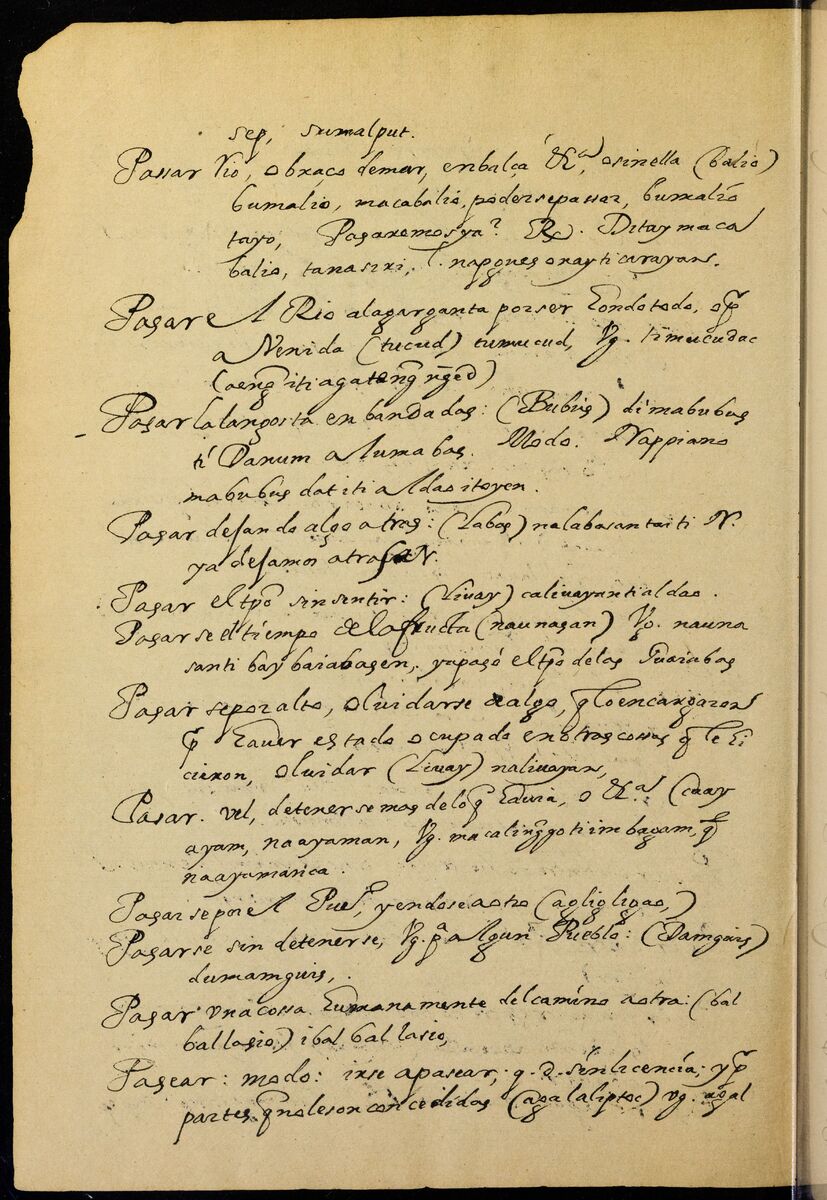 sep, sumalput.
Passar Rio, o braço de mar, en balça &ª, o sin ella (balio)
bumalio, macabalio, poder se passar, bumalio
tayo, Pasaremos ya? R. Ditay maca
balio, tanasiri, l. napones onay ti carayan.
Pasar el Rio a la garganta por ser hondo todo, o pr
a Venida (tucud) tumucud, Vg. timucudac
Pasar la langosta en bandadas: (Bubus) dimabubus
ti Danum a lumabas. Modo. Nappiano
mabubus dat iti aldao itoyen.
Pasar dejando algo atras: (Labas) nalabasan taiti N.
ya dejamos atras N.
Pasar el tpo sin sentir: (Liuay) caliuayanti aldao.
Pasarse el tiempo de la fructa (naunasan) Vg. nauna
santi baybaiabasen, ya pasó el tpo de las Guaiabas
Pasarse por alto, oluidarse de algo, q lo encargaron
pr hauer estado ocupado en otras cossas q le hi
cieron, oluidar (Liuay) naliuayan,
Pasar. vel, detenerse mas de lo q hauia, o &ª (cuay
ayam, naayaman, Vg.
naayamanca.
Pasarse por el Pueº, yendose a otro (agligligao,)
Pasarse sin detenerse, Vg. pr algun Pueblo: (Damguis)
dumamguis,.
Pasar vna cossa humanamente del camino a otra: (bal
ballasio,) ibalballasio,
Pasear: modo: irse a pasear, q. d. sin licencia, y pr
partes q no le son concedidas (agalaliptoc) vg. agal